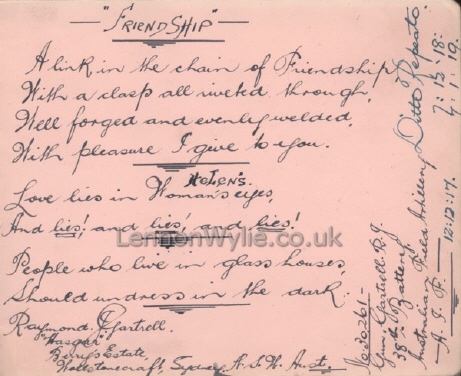 "FRIENDSHIP"
A link in the chain of Friendship
With a clasp all riveted through,
Well forged and evenly welded,
With pleasure I give to you.
HELEN'S
Love lies in Woman's eyes,
And lies! and lies! and lies!
LennonWylie.co.uk
People who live in glass houses,
Should undress in the dark.
Raymond. Gartrell.
Berry's Estate,
Wollstonecraft, Sydney N.S.W. Aust.
No 30261 -
Gunr. Gartrell. R.G.
38th Battery
Australian Field Artillery
A. I. F. — 12:12:17.
Ditto Repeato:
7:12:18:
4:1:19.